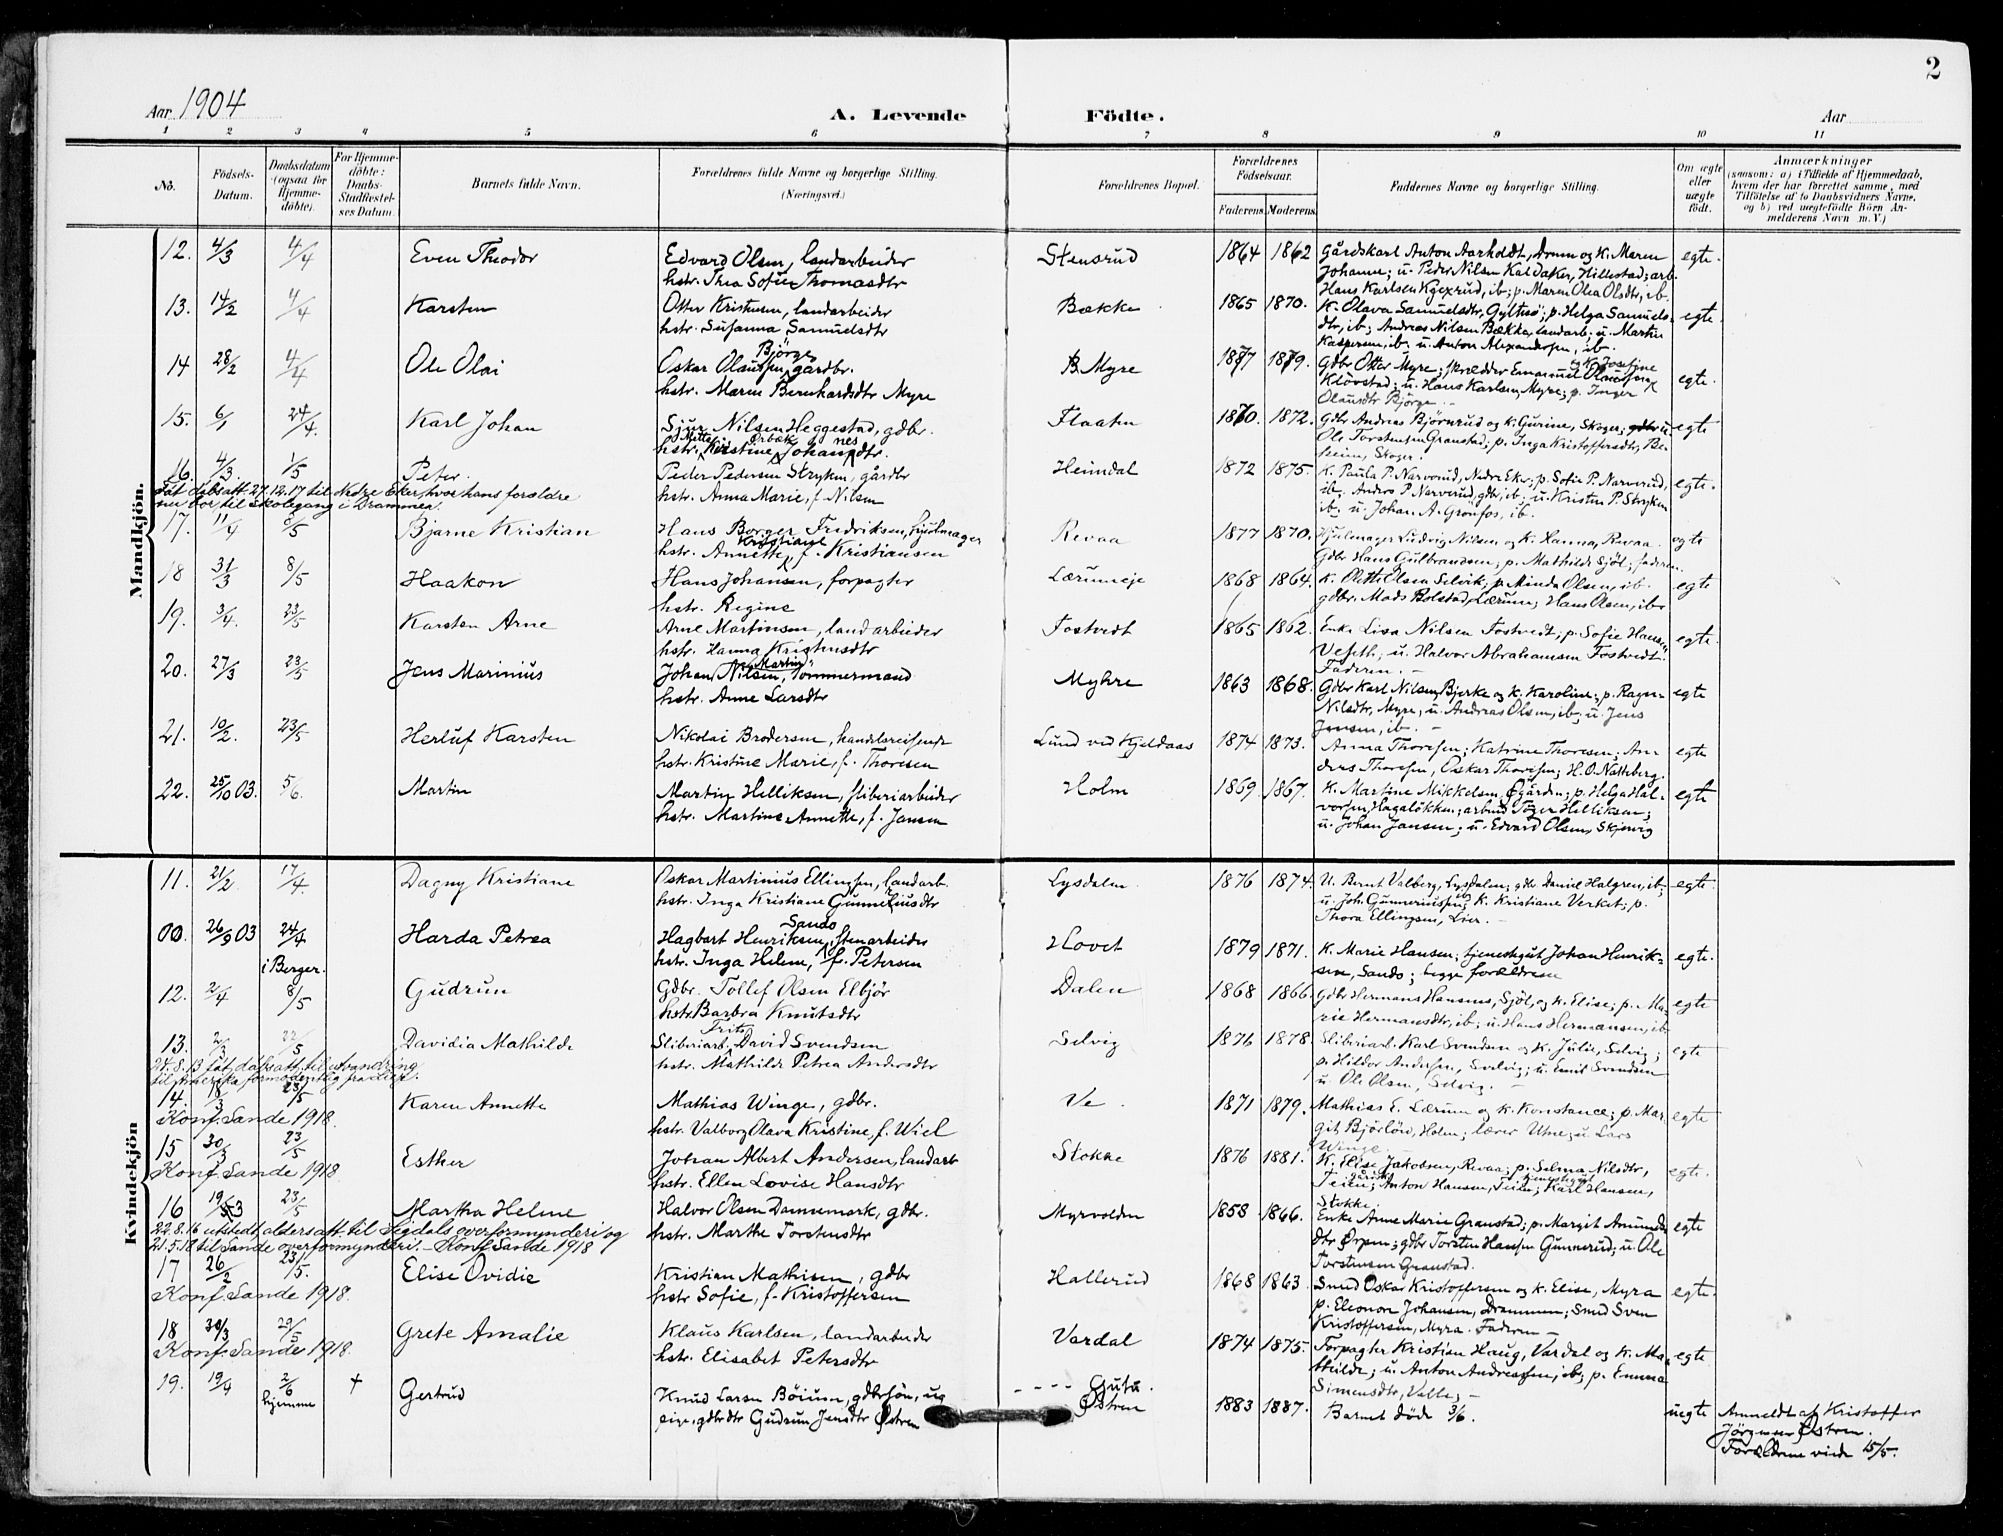 2
Aar 1904
A. Levende Födte.
Aar
1 2 3 4 5 6 7 8 9 10 11
No.
Födsels-Datum.
Daabsdatum (ogsaa for Hjemme-döbte).
For Hjemme-döbte: Daabs-Stadfæstel-ses Datum.
Barnets fulde Navn.
Forældrenes fulde Navne og borgerlige Stilling. (Næringsvei.)
Forældrenes Bopæl.
Forældrenes Födselsaar.
Faderens. Moderens.
Faddernes Navne og borgerlige Stilling.
Om ægte eller uægte födt.
Anmærkninger
(saasom: a) i Tilfælde af Hjemmedaab,
hvem der har forrettet samme, med
Tilföielse af to Daabsvidners Navne,
og b) ved uægtefödte Börn An-
melderens Navn m. V.)
Mandkjön.
12. 4/3 4/4 Even Theodor Edvard Olsen, landarbeider Stensrud 1864 1862 Gårdskarl Anton Aarholdt, Dramm og k. Maren egte.
hstr. Thea Sofie Thomasdtr Johanne; u. Peder Nilsen Kaldaker, Hillestad; arb.
Hans Karlsen, ib; p. Maren Olea Olsdtr, ib.
13. 14/2 4/4 Karsten Otter Kristensen, landarbeider Bække 1865 1870. K. Olava Samuelsdtr, Gyltesø; p. Helga Samuels- egte.
hstr. Susanna Samuelsdtr dtr, ib; Andreas Nilsen Bække, landarb; u. Martin
Kaspersen, ib. u. Anton Alexandersen, ib.
14 28/2 4/4 Ole Olai Oskar Olausen Bjørge gårdbr. B. Myre 1877 1879. Gdbr Otter Myre; skrædder Emanuel Olausen og k. Josefine egte.
hstr. Maren Bernhardsdtr Myre Klövstad; u. Hans Karlsen Myre; p. Inger
Olausdtr Bjørge -
15. 6/1 24/4. Karl Johan Sjur Nilsen Heggestad, gdbr. Flaatn 1870. 1872. Gdbr Andreas Bjørnrud og k. Gurine, Skoger; egte
hstr. Mette Kirstine Ørbæk Johannesdtr. Ole Torstensen Granstad; p. Inga Kristoffersdtr, Be-
heim, Skoger.
16. 4/3. 1/5 Peter Peder Pedersen Stryken, gårdbr Heimdal 1872 1875. K. Paula P. Narverud, Nedre Eker; p. Sofie P. Narverud, egte.
Fåt dåbsatt. 27.12.17 til Nedre Eker, hvor hans forældre hstr. Anna Marie, f. Nilsen ib. Andros P. Narverud, gdbr, ib; u. Kristen P. Stryken
nu bor til skolegang i Drammen. ib. u. Johan A. Grönfos, ib.
17. 11/4 8/5 Bjarne Kristian Hans Borger Fredriksen, hjulmager Revaa 1877 1870. Hjulmager Ludvig Nilsen og k. Hanna, Revaa. egte
hstr. Annette Kristiane f. Kristiansen Gdbr Hans Gulbrandsen; p. Mathilde Sjöl; faderen.
18 31/3 8/5 Haakon Hans Johansen, forpagter Lærumeje 1868 1864. K. Olette Olsen Selvik; p. Minda Olsen, ib. egte
hstr. Regine gdbr. Mads Bolstad, Lærum; Hans Olsen, ib.
19. 3/4. 23/5 Karsten Arne Arne Martinsen, landarbeider Fostvedt 1865 1862. Enke Lisa Nilsen Fostvedt; p. Sofie Hansen egte.
hstr. Hanna Kristensdtr Veseth; u. Halvor Abrahamsen Fostvedt.
Faderen. -
20. 27/3 23/5 Jens Marinius Johan Martin Nilsen, Tömmermand Myhre 1863 1868. Gdbr Karl Nilsen Bjerke og k. Karoline; p. Ragn- egte
hstr. Anne Larsdtr Nilsdtr, Myre, u. Andreas Olsen, ib; u. Jens
Jensen, ib. -
21. 10/2. 23/5 Herluf Karsten Nikolai Brodersen, handelsreisende Lund ved Kjeldaas 1874 1873. Anna Thoresen; Katrine Thoresen; An- egte
hstr. Kristine Marie, f. Thoresen dreas Thoresen, Oskar Thoresen; H. O. Natteberg.
22. 25/10 03. 5/6. Martin Martin Helliksen, sliberiarbeider Holm 1869 1867. K. Martine Mikkelsen, Øgården; p. Helga Hal- egte
hstr. Martine Annette, f. Jansen vorsen, Hagalökken; arbeid Töger Helliksen;
u. Johan Jansen; u. Edvard Olsen, Skjervig
Kvindekjön
11. 21/2 17/4. Dagny Kristiane Oskar Martinius Ellingsen, landarb. Lysdalen 1876 1874. U. Bernt Valberg, Lysdalen; gdbr Daniel Halgren, ib; egte.
hstr. Inga Kristiane Gunneriusdtr u. Joh. Gunneriussen, ib; K. Kristiane Verket; p.
Thora Ellingsen, Lier. -
00. 26/9 03 24/4 i Berger. Harda Petrea Hagbart Henriksen Sando, stenarbeider Hovet 1879 1871. K. Marie Hansen; tjenestegut Johan Henrik- egte.
hstr. Inga Helene, f. Petersen sen, Sando; begge forældrene
12. 2/4 8/5 Gudrun Gdbr. Tollef Olsen Elbjör Dalen 1868 1866. Gdbr Hermans Hansens, Sjöl, og k. Elise; p. Ma- egte
hstr. Barbra Knutsdtr rie Hermansdtr, ib; u. Hans Hermansen, ib
13. 2/3 22/5 Davidia Mathilde Sliberiarb. Frits David Svendsen Selvig 1876 1878. Sliberiarb Karl Svendsen og k. Julie, Selvig; egte
24.8.23 fåt dåbsatt. til utvandring hstr. Mathilde Petrea Andersdtr p. Hildor Andersen, Selvig; u. Emil Svendsen
til Amerika formodentlig fra Lier. u. Ole Olsen, Selvig. -
14. 18/3 23/5 Karen Annette Mathias Winge, gdbr. Ve. 1871 1879. Mathias E. Lærum og k. Konstance; p. Mar- egte
Konf. Sande 1918. hstr. Valborg Olava Kristine, f. Wiel git Björlöw, Holm; lærer Utne; u. Lars
Winge -
15 30/3 23/5 Esther Johan Albert Andersen, landarb Stokke 1876 1881. K. Elise Jakobsen, Revaa; p. Selma Nilsdtr, egte.
Konf. Sande 1918. hstr. Ellen Lovise Hansdtr Teien; gårdbr Anton Hansen, Teien; tjenestegut Karl Hansen,
Stokke.
16 19/3 23/5 Martha Helene Halvor Olsen Dannemark, gdbr. Myrvolden 1858 1866. Enke Anne Marie Granstad; p. Margit Amunds- egte
22.8.16 utstedt aldersatt. til Sigdals overformynderi og hstr. Marthe Torstensdtr dtr Ørpen; gdbr Torsten Hansen Gunnerud; u. Ole
21.5.18 til Sande overformynderi. - Konf. Sande 1918 Torstensen Granstad.
17 26/2 23/5. Elise Ovidie Kristian Mathisen, gdbr Hallerud 1868 1863. Smed Oskar Kristoffersen og k. Elise, Myra egte.
Konf. Sande 1918. hstr Sofie, f. Kristoffersen p. Eleonore Johansen, Drammen; Smed Sven
Kristoffersen, Myra. Faderen -
18 30/3 29/5 Grete Amalie Klaus Karlsen, landarbeider Vardal 1874 1875. Forpagter Kristian Haug, Vardal og k. Ma- egte
Konf. Sande 1918. hstr. Elisabet Petersdtr thilde; u. Anton Andreassen, ib; p. Emma
Simensdtr, Valle; -
19. 19/4 2/6 hjemme + Gertrud Knud Larsen Böium, gdbrsön, ug ---- Gutu. 1883 1887. Barnet döde 3/6. uegte Anmeldt af Kristoffer
pige, gdbrdtr Gudrun Jensdtr Østren Østren Jörgensen Østren.
Forældrene viede 15/5.